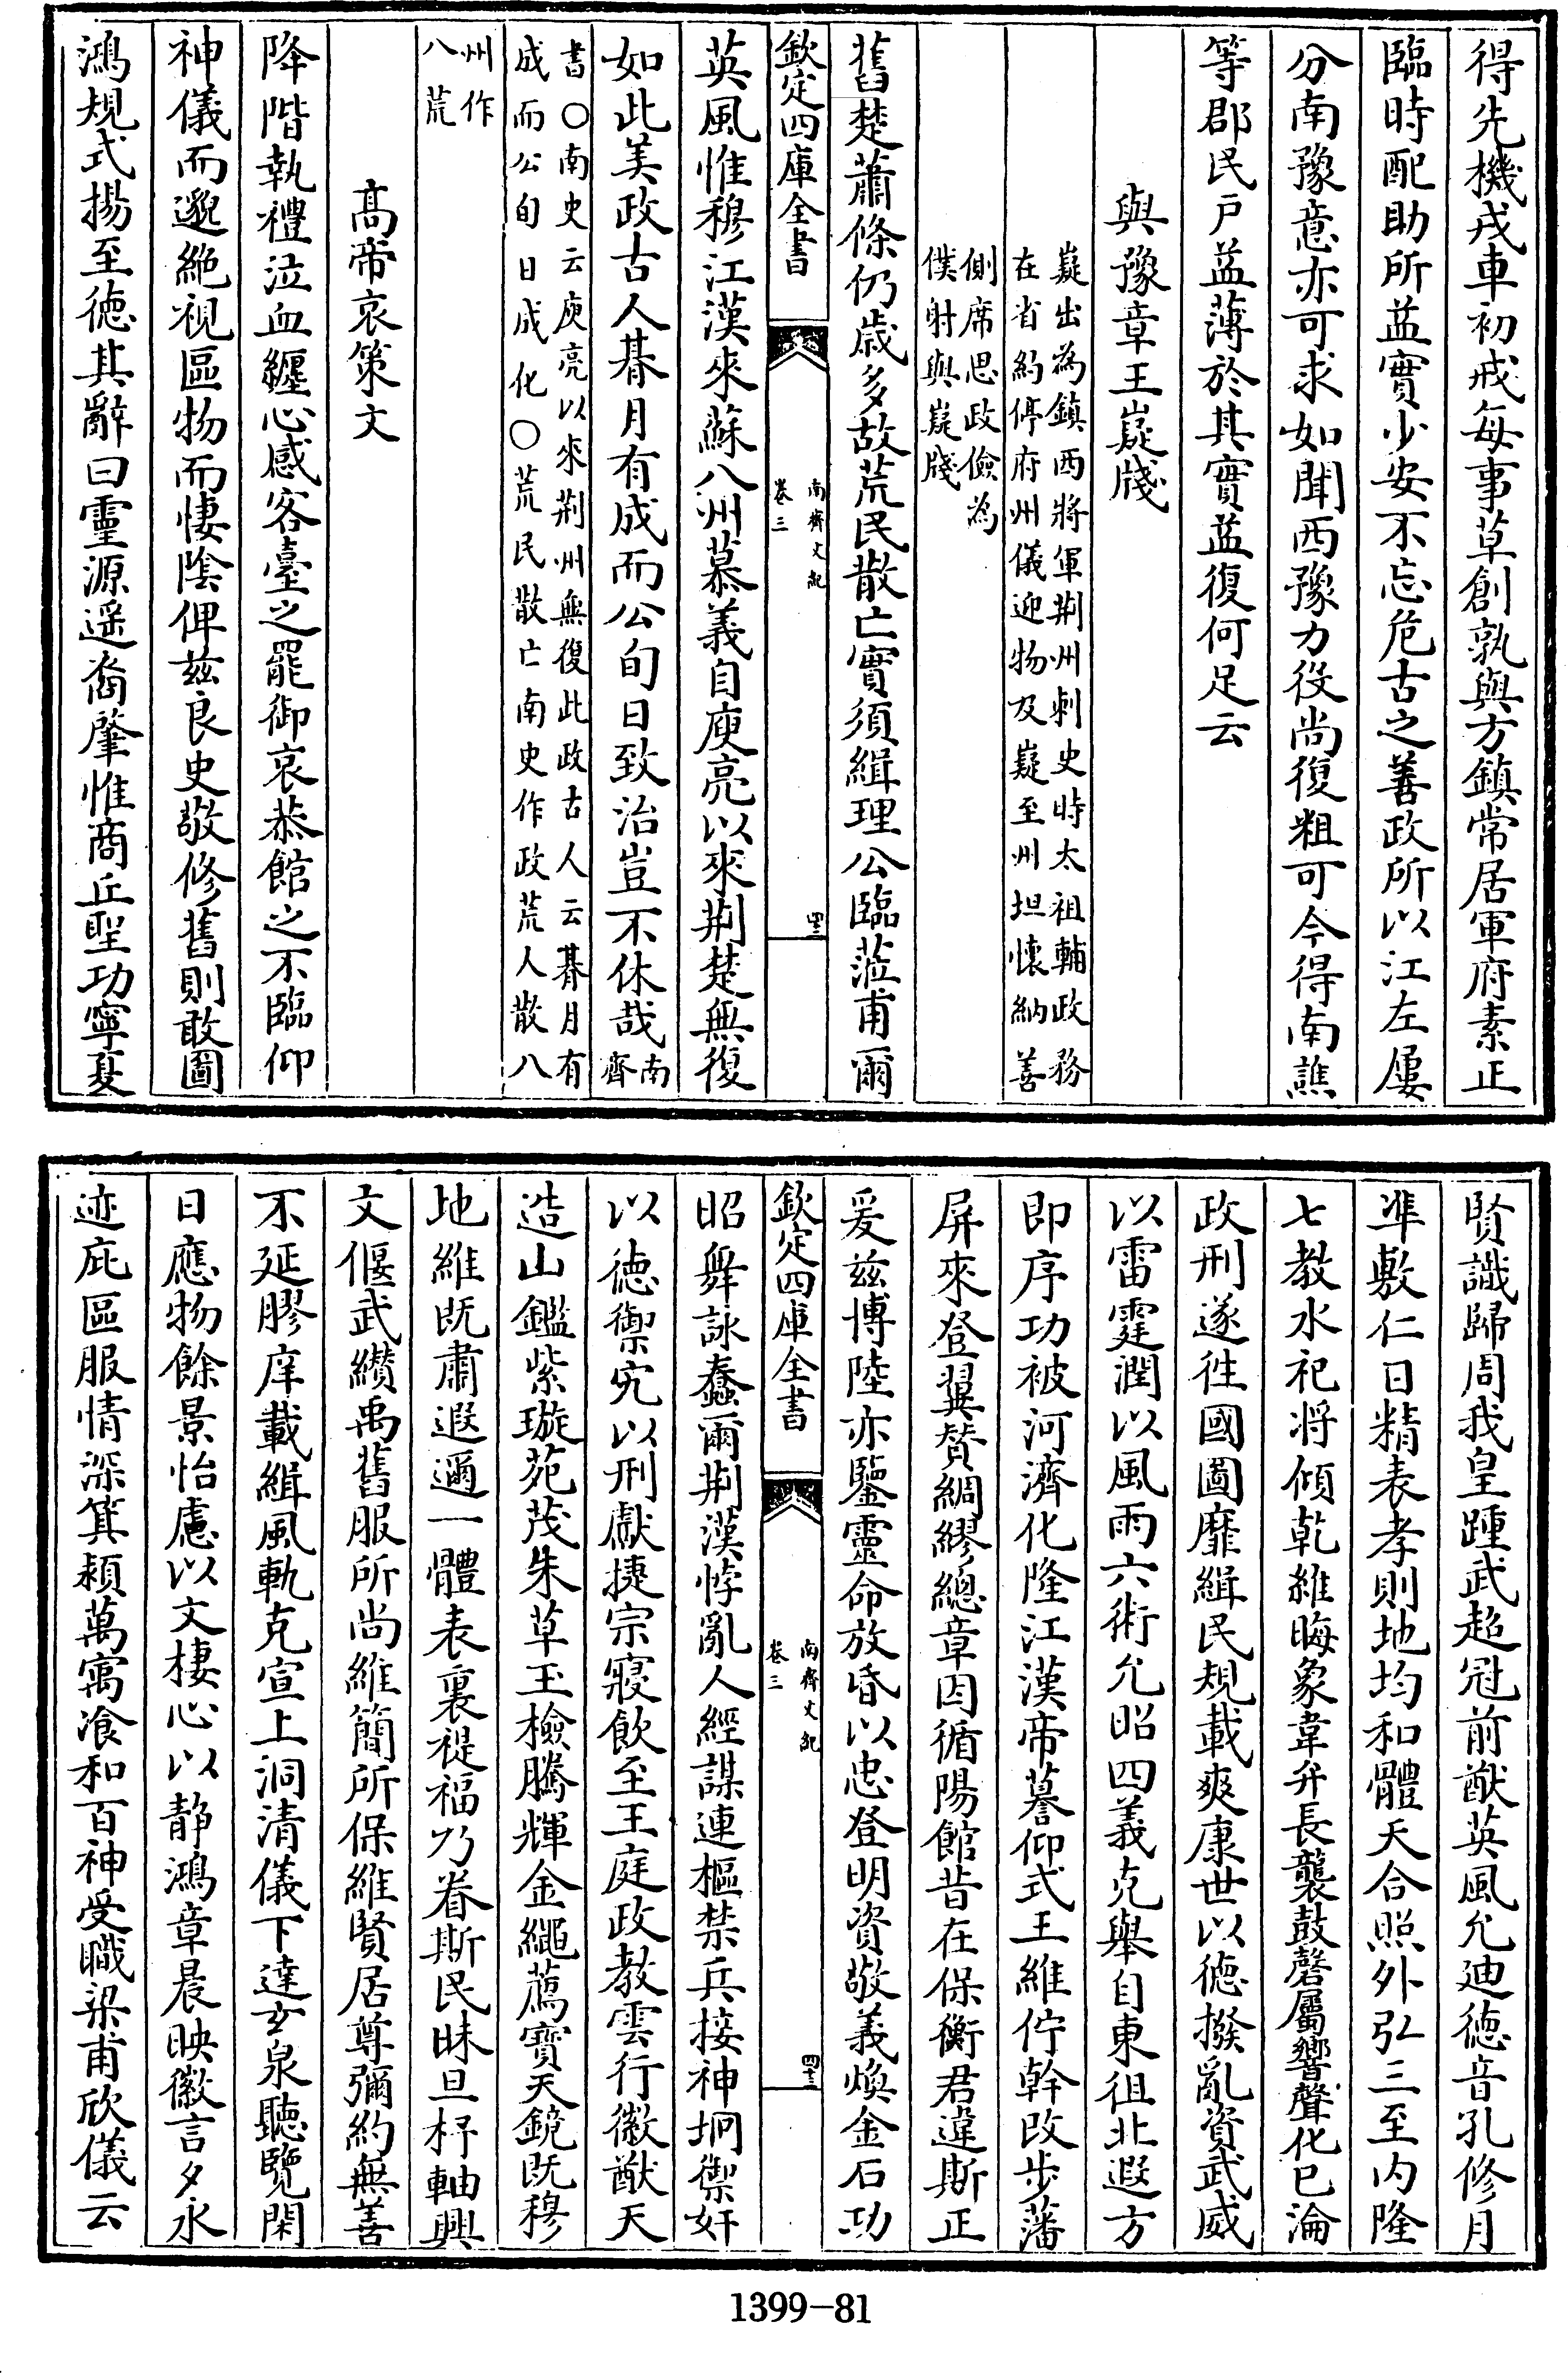 得先機戎車初戒每事草創孰與方鎮常居軍府素正
臨時配助所益實少安不忘危古之善政所以江左屢
分南豫意亦可求如聞西豫力役尚復粗可今得南譙
等郡民戶益薄於其實益復何足云
與豫章王嶷牋
嶷出為鎮西將軍荆州刺史時太祖輔政務
在省約停府州儀迎物及嶷至州坦懷納善
側席思政儉為
僕射與嶷牋
舊楚蕭條仍歲多故荒民散亡實須緝理公臨蒞甫爾
欽定四庫全書
南齊文紀
卷三
四三
英風惟穆江漢來蘇八州慕義自庾亮以來荆楚無復
如此美政古人朞月有成而公旬日致治豈不休哉南
齊
書○南史云庾亮以來荆州無復此政古人云朞月有
成而公旬日成化○荒民散亡南史作政荒人散八
州作
八荒
高帝哀策文
降階執禮泣血纏心感容臺之罷御哀恭館之不臨仰
神儀而邈絶視區物而悽陰俾兹良史敬修舊則敢圖
鴻規式揚至德其辭曰靈源遥裔肇惟商丘聖功寧夏
賢識歸周我皇踵武超冠前猷英風允廸德音孔修月
準敷仁日精表孝則地均和體天合照外弘三至内隆
七教水祀将傾乾維晦象韋弁長襲鼓磬屬響聲化已淪
政刑遂徃國圖靡緝民規載爽康世以德撥亂資武威
以雷霆潤以風雨六術允昭四義克舉自東徂北遐方
即序功被河濟化隆江漢帝謩仰式王維佇幹改步藩
屏來登翼賛綢繆總章因循陽館昔在保衡君違斯正
爰兹博陸亦鑒靈命放昏以忠登明資敬義煥金石功
欽定四庫全書
南齊文紀
卷三
四三
昭舞詠蠢爾荆漢悖亂人經謀連樞禁兵接神坰禦奸
以德禦宄以刑獻捷宗寢飲至王庭政教雲行徽猷天
造山鑑紫璇苑茂朱草玉檢騰輝金繩薦寶天鏡既穆
地維既肅遐邇一體表裏禔福乃眷斯民昧旦杼軸興
文偃武纉禹舊服所尚維簡所保維賢居尊彌約無善
不延膠庠載緝風軌克宣上洞清儀下達玄泉聽覽閑
日應物餘景怡慮以文棲心以静鴻章晨映徽言夕永
迹庇區服情深箕潁萬㝢飡和百神受職梁甫欣儀云
1399-81